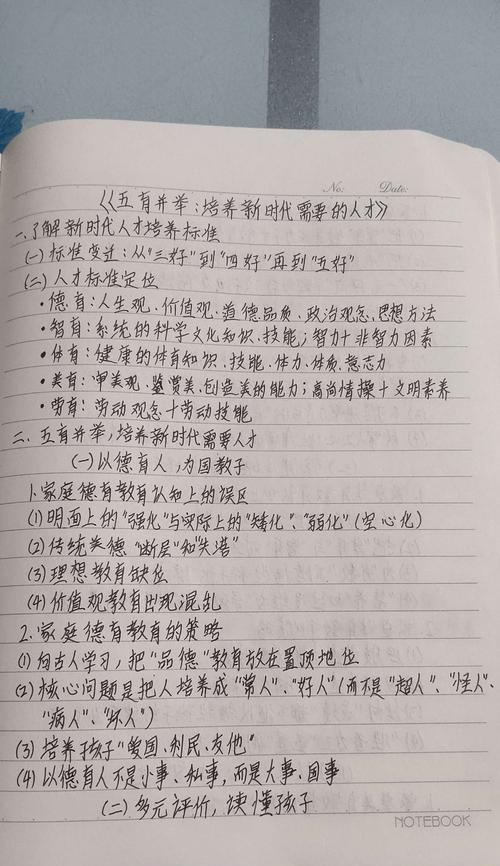 No: Date:
《五育并举:培养新时代需要的人才》
一、了解新时代人才培养标准
(一)标准变迁:从“三好”到“四好”再到“五好”
(二)人才标准定位
·德育:人生观、价值观、道德品质、政治观念、思想方法
·智育:系统的科学文化知识、技能;智力+非智力因素
·体育:健康的体育知识、技能、体力、体质、意志力
·美育:审美观、鉴赏美、创造美的能力;高尚情操+文明素养
·劳育:劳动观念+劳动技能
二、五育并举,培养新时代需要人才
(一)以德育人,为国教子
1、家庭德育教育认知上的误区
(1)明面上的“强化”与实际上的“矮化”、“弱化”(空心化)
(2)传统美德“断层”和“失落”
(3)理想教育缺位
(4)价值观教育出现混乱
2、家庭德育教育的策略
(1)向古人学习,把“品德”教育放在置顶地位
(2)核心问题是把人培养成“常人”、“好人”(而不是“超人”、“怪人”、
“病人”、“坏人”)
(3)培养孩子“爱国、利民、友他”
(4)以德育人不是小事、私事,而是大事、国事
(二)多元评价,读懂孩子
NOTEBOOK